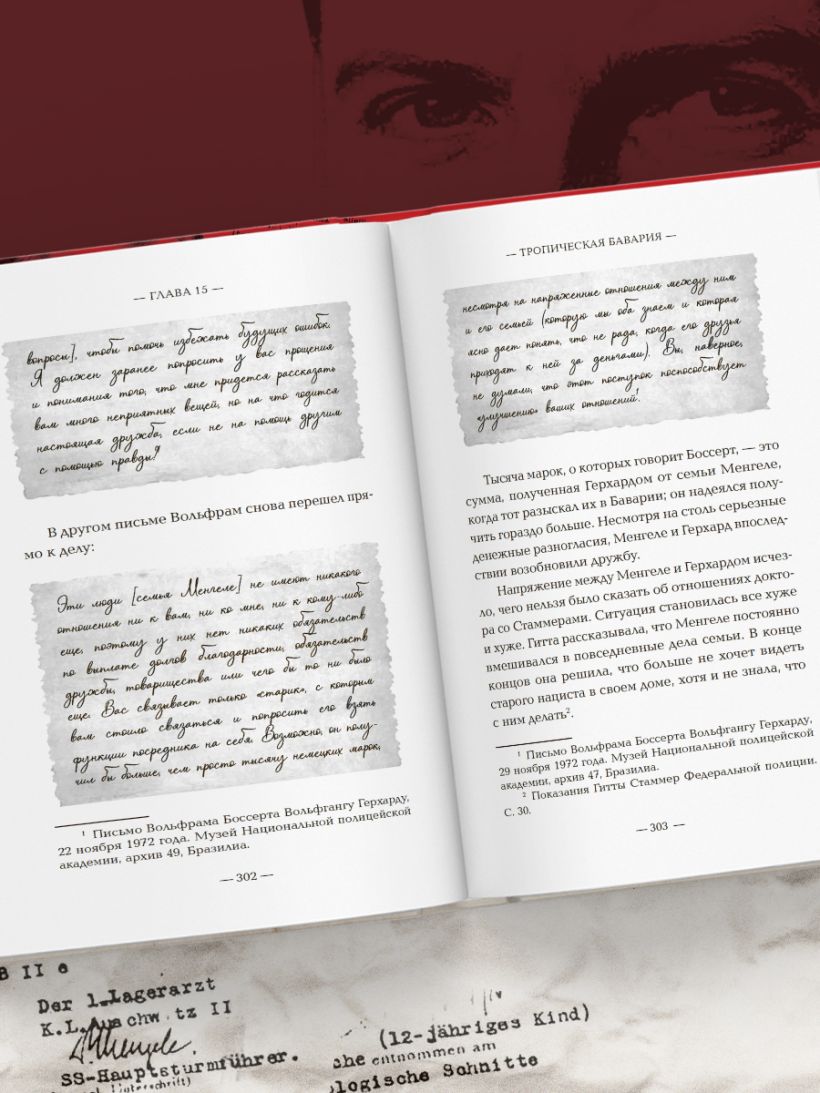 — ГЛАВА 15 —
вопросы], чтобы помочь избежать будущих ошибок.
Я должен заранее попросить у вас прощения
и понимания того, что мне придется рассказать
вам много неприятных вещей, но на что годится
настоящая дружба, если не на помощь другим
с помощью правды?¹
В другом письме Вольфрам снова перешел пря-
мо к делу:
Эти люди [семья Менгеле] не имеют никакого
отношения ни к вам, ни ко мне, ни к кому-либо
еще, поэтому у них нет никаких обязательств
по выплате долгов благодарности, обязательств
дружбы, товарищества или чего бы то ни было
еще. Вас связывает только «старик», с которым
вам стоило связаться и попросить его взять
функции посредника на себя. Возможно, он полу-
чил бы больше, чем просто тысячу немецких марок,
¹ Письмо Вольфрама Боссерта Вольфгангу Герхарду,
22 ноября 1972 года. Музей Национальной полицейской
академии, архив 49, Бразилиа.
— 302 —
— ТРОПИЧЕСКАЯ БАВАРИЯ —
несмотря на напряженные отношения между ним
и его семьей (которую мы оба знаем и которая
ясно дает понять, что не рада, когда его друзья
приходят к ней за деньгами). Вы, наверное,
не думали, что этот поступок поспособствует
«улучшению» ваших отношений¹.
Тысяча марок, о которых говорит Боссерт, — это
сумма, полученная Герхардом от семьи Менгеле,
когда тот разыскал их в Баварии; он надеялся полу-
чить гораздо больше. Несмотря на столь серьезные
денежные разногласия, Менгеле и Герхард впослед-
ствии возобновили дружбу.
Напряжение между Менгеле и Герхардом исчез-
ло, чего нельзя было сказать об отношениях докто-
ра со Стаммерами. Ситуация становилась все хуже
и хуже. Гитта рассказывала, что Менгеле постоянно
вмешивался в повседневные дела семьи. В конце
концов она решила, что больше не хочет видеть
старого нациста в своем доме, хотя и не знала, что
с ним делать².
¹ Письмо Вольфрама Боссерта Вольфгангу Герхарду,
29 ноября 1972 года. Музей Национальной полицейской
академии, архив 47, Бразилиа.
² Показания Гитты Стаммер Федеральной полиции.
С. 30.
— 303 —
B II e
Der 1.Lagerarzt
K.L.Auschwitz II
SS-Hauptsturmführer.
(12-jähriges Kind)
entnommen am
ologische Schnitte